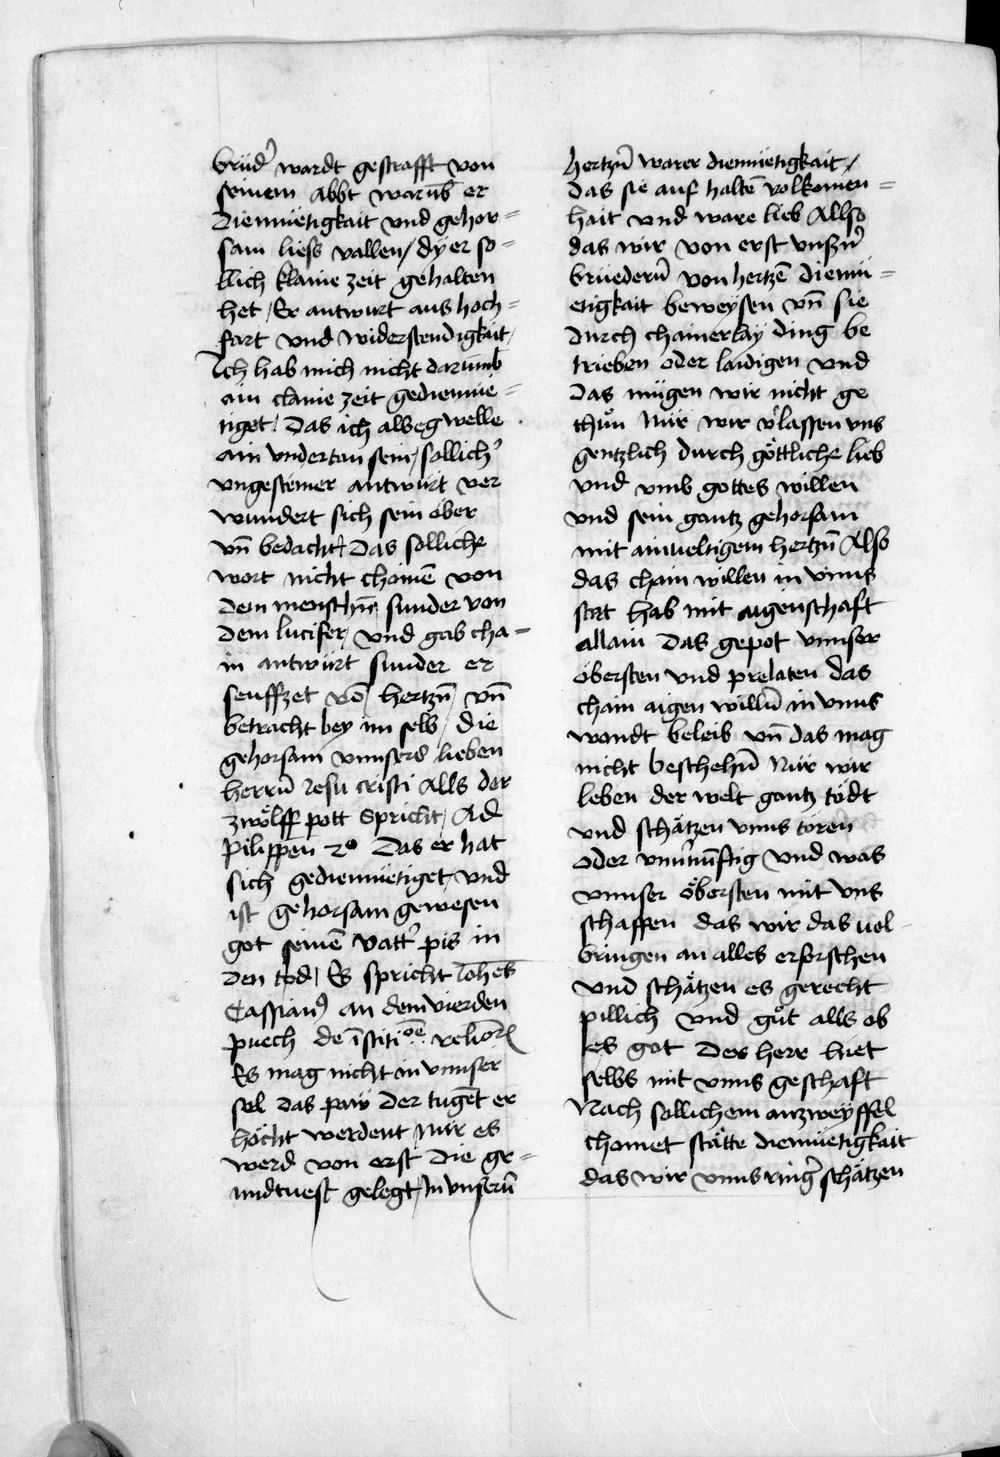 brüd᾽ wardt gestrafft von
seinem Abbt warūb er
Diemüetigkait vnd gehor=
sam liess vallen / dÿ er so=
llich klaine zeit gehalten
het / Er antwurt aus hoch=
fart vnd widerstendigkait /
Ich hab mich nicht darumb
ain claine zeit gediemüe=
tiget / Das ich albeg welle
ain vndertan sein / sollich᾽
vngestümer antwürt ver
wundert sich sein ober
vn̄ bedacht / Das solliche
wort nicht chömē von
dem menschn̄ sunder von
dem lucifer / vnd gab cha=
in antwürt sunder er
seuffzet vō hertzn̄ / vn̄
betracht bey im selb / die
gehorsam vnnsers lieben
herrn̄ Jesu cristi Alls der
zwölff pott spricht / Ad
Pilippen 2º Das er hat
sich gediemüetiget / vnd
ist gehorsam gewesen
got seinē vatt᾽ pis in
den tod / Es spricht Johēs
Cassian⁹ an dem vierden
puech de īstitiōe
Es mag nicht in vnnser
sel das paw der tugēt er
höcht werdent Nür es
werd von erst die ge=
undtuest gelegt / In vnserm̄
hertzn̄ warer diemüetigkait /
das sie auf haltē volkomen=
hait vnd ware lieb Allso
das wir von erst vnsn̄
brüedern̄ von hertzē diemü=
etigkait beweÿsen vn̄ sie
durch chainerlaÿ ding be
trieben oder laidigen vnd
das mügen wir nicht ge
thůn Nür wir v᾽lassen vns
gentzlich durch göttliche lieb
vnd vmb gottes willen
vnd sein gantz gehorsam
mit ainueltigem hertzn̄ Also
das chain willen in vnns
stat hab mit aigenschaft
allain das gepot vnnser
öbersten vnd prelaten das
chain aigen willn̄ in vnns
wondt beleib vn̄ das mag
nicht beschehn̄ Nür wir
leben der welt gantz tödt
vnd schätzen vnns toren
oder vnu᾽nünftig vnd was
vnnser öbersten mit vns
schaffen das wir das uol
bringen an alles erforschen
vnd schätzen es gerecht
pillich vnd gůt alls ob
es got der herr hiet
selbs mit vnns geschaft
Nach sollichem anzweÿffel
chomet stätte diemüetigkait
das wir vnns ring᾽ schätzen